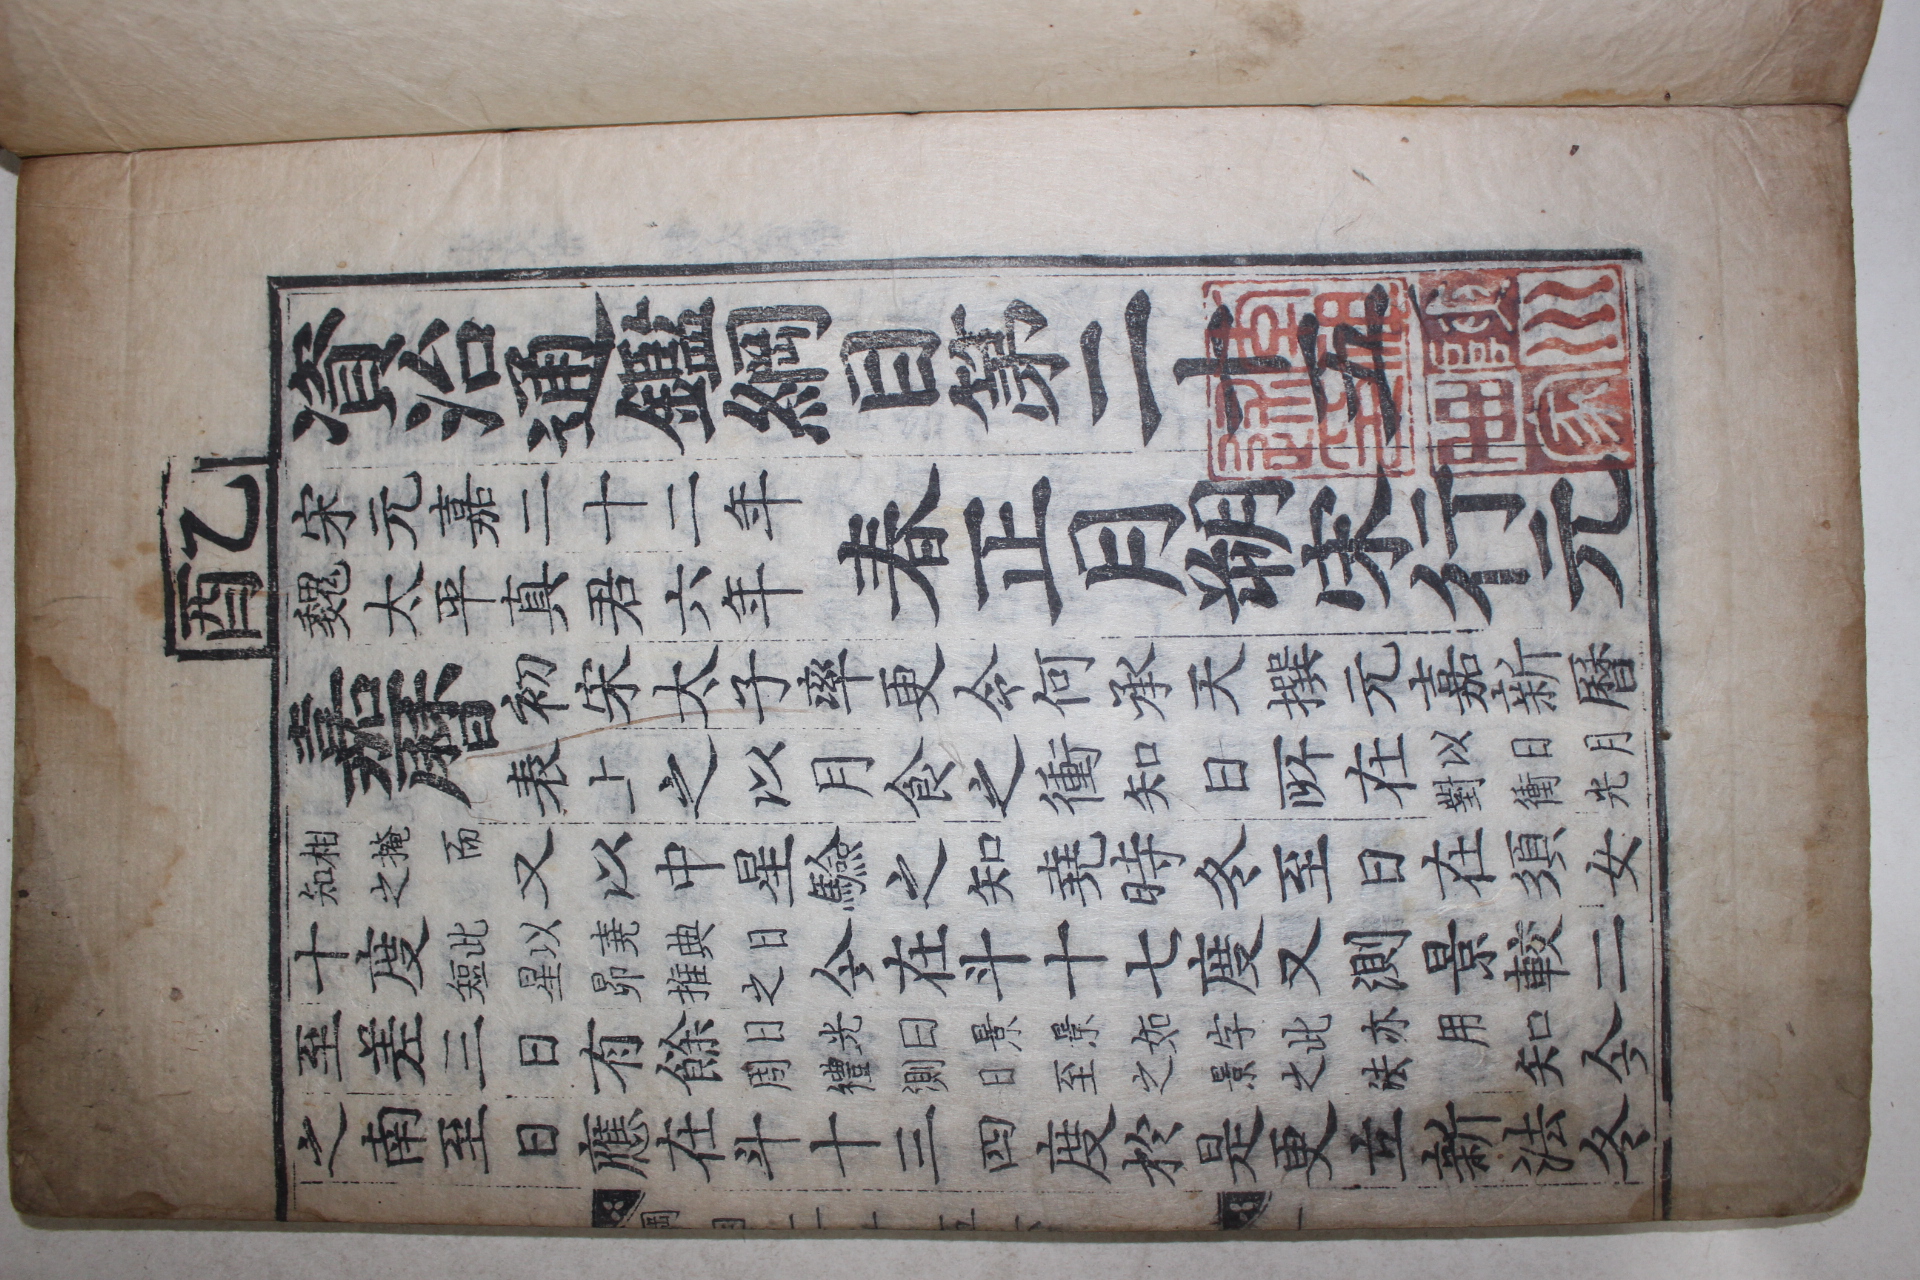 乙酉
資治通鑑綱目第二十五
宋元嘉二十二年
魏太平真君六年
春正月朔宋行元
嘉曆
初宋太子率更令何承天撰元嘉新曆
表上之以月食之衝知日所在
以日月
對衝光
相掩而
知之
又以中星驗之知堯時冬至日在須女
十度
此以堯典日
短星昴推之
今在斗十七度又測景較二
至差三日有餘
日光曰景景如字此亦用
周禮測日至之景之法
知今
之南至日應在斗十三四度於是更立新法冬
綱目二十五
一